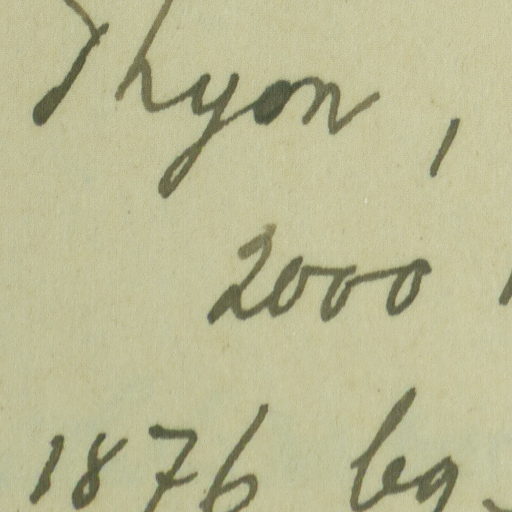 Thyon,
2000
1876 lg.